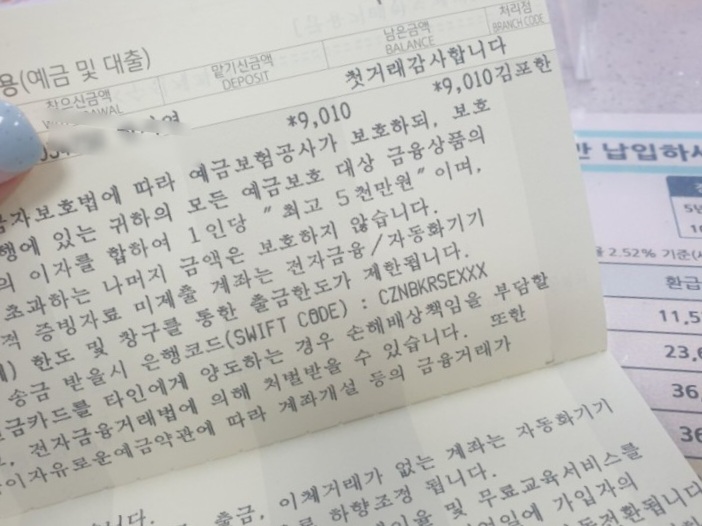 용(예금 및 대출)
찾으신금액
맡기신금액
DEPOSIT
남은금액
BALANCE
처리점
BRANCH CODE
첫거래감사합니다
*9,010
*9,010김포한
금자보호법에 따라 예금보험공사가 보호하되, 보호
행에 있는 귀하의 모든 예금보호 대상 금융상품의
의 이자를 합하여 1인당 "최고 5천만원"이며,
초과하는 나머지 금액은 보호하지 않습니다.
적 증빙자료 미제출 계좌는 전자금융/자동화기기
한도 및 창구를 통한 출금한도가 제한됩니다.
송금 받을시 은행코드(SWIFT CODE) : CZNBKRSEXXX
금카드를 타인에게 양도하는 경우 손해배상책임을 부담할
전자금융거래법에 의해 처벌받을 수 있습니다. 또한
이자유로운예금약관에 따라 계좌개설 등의 금융거래가
니다.
출금, 이체거래가 없는 계좌는 자동화기기
로 하향조정 됩니다.
및 무료교육서비스를
에 가입자의
전환됩니다
납입하세
2.52% 기준
환급
11,5
23,6
36,
36